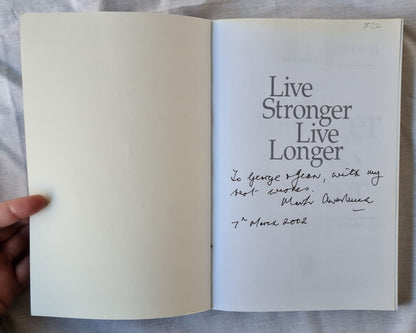 $22
Live
Stronger
Live
Longer
To George & Jean, with my
best wishes.
Mark
7th March 2002